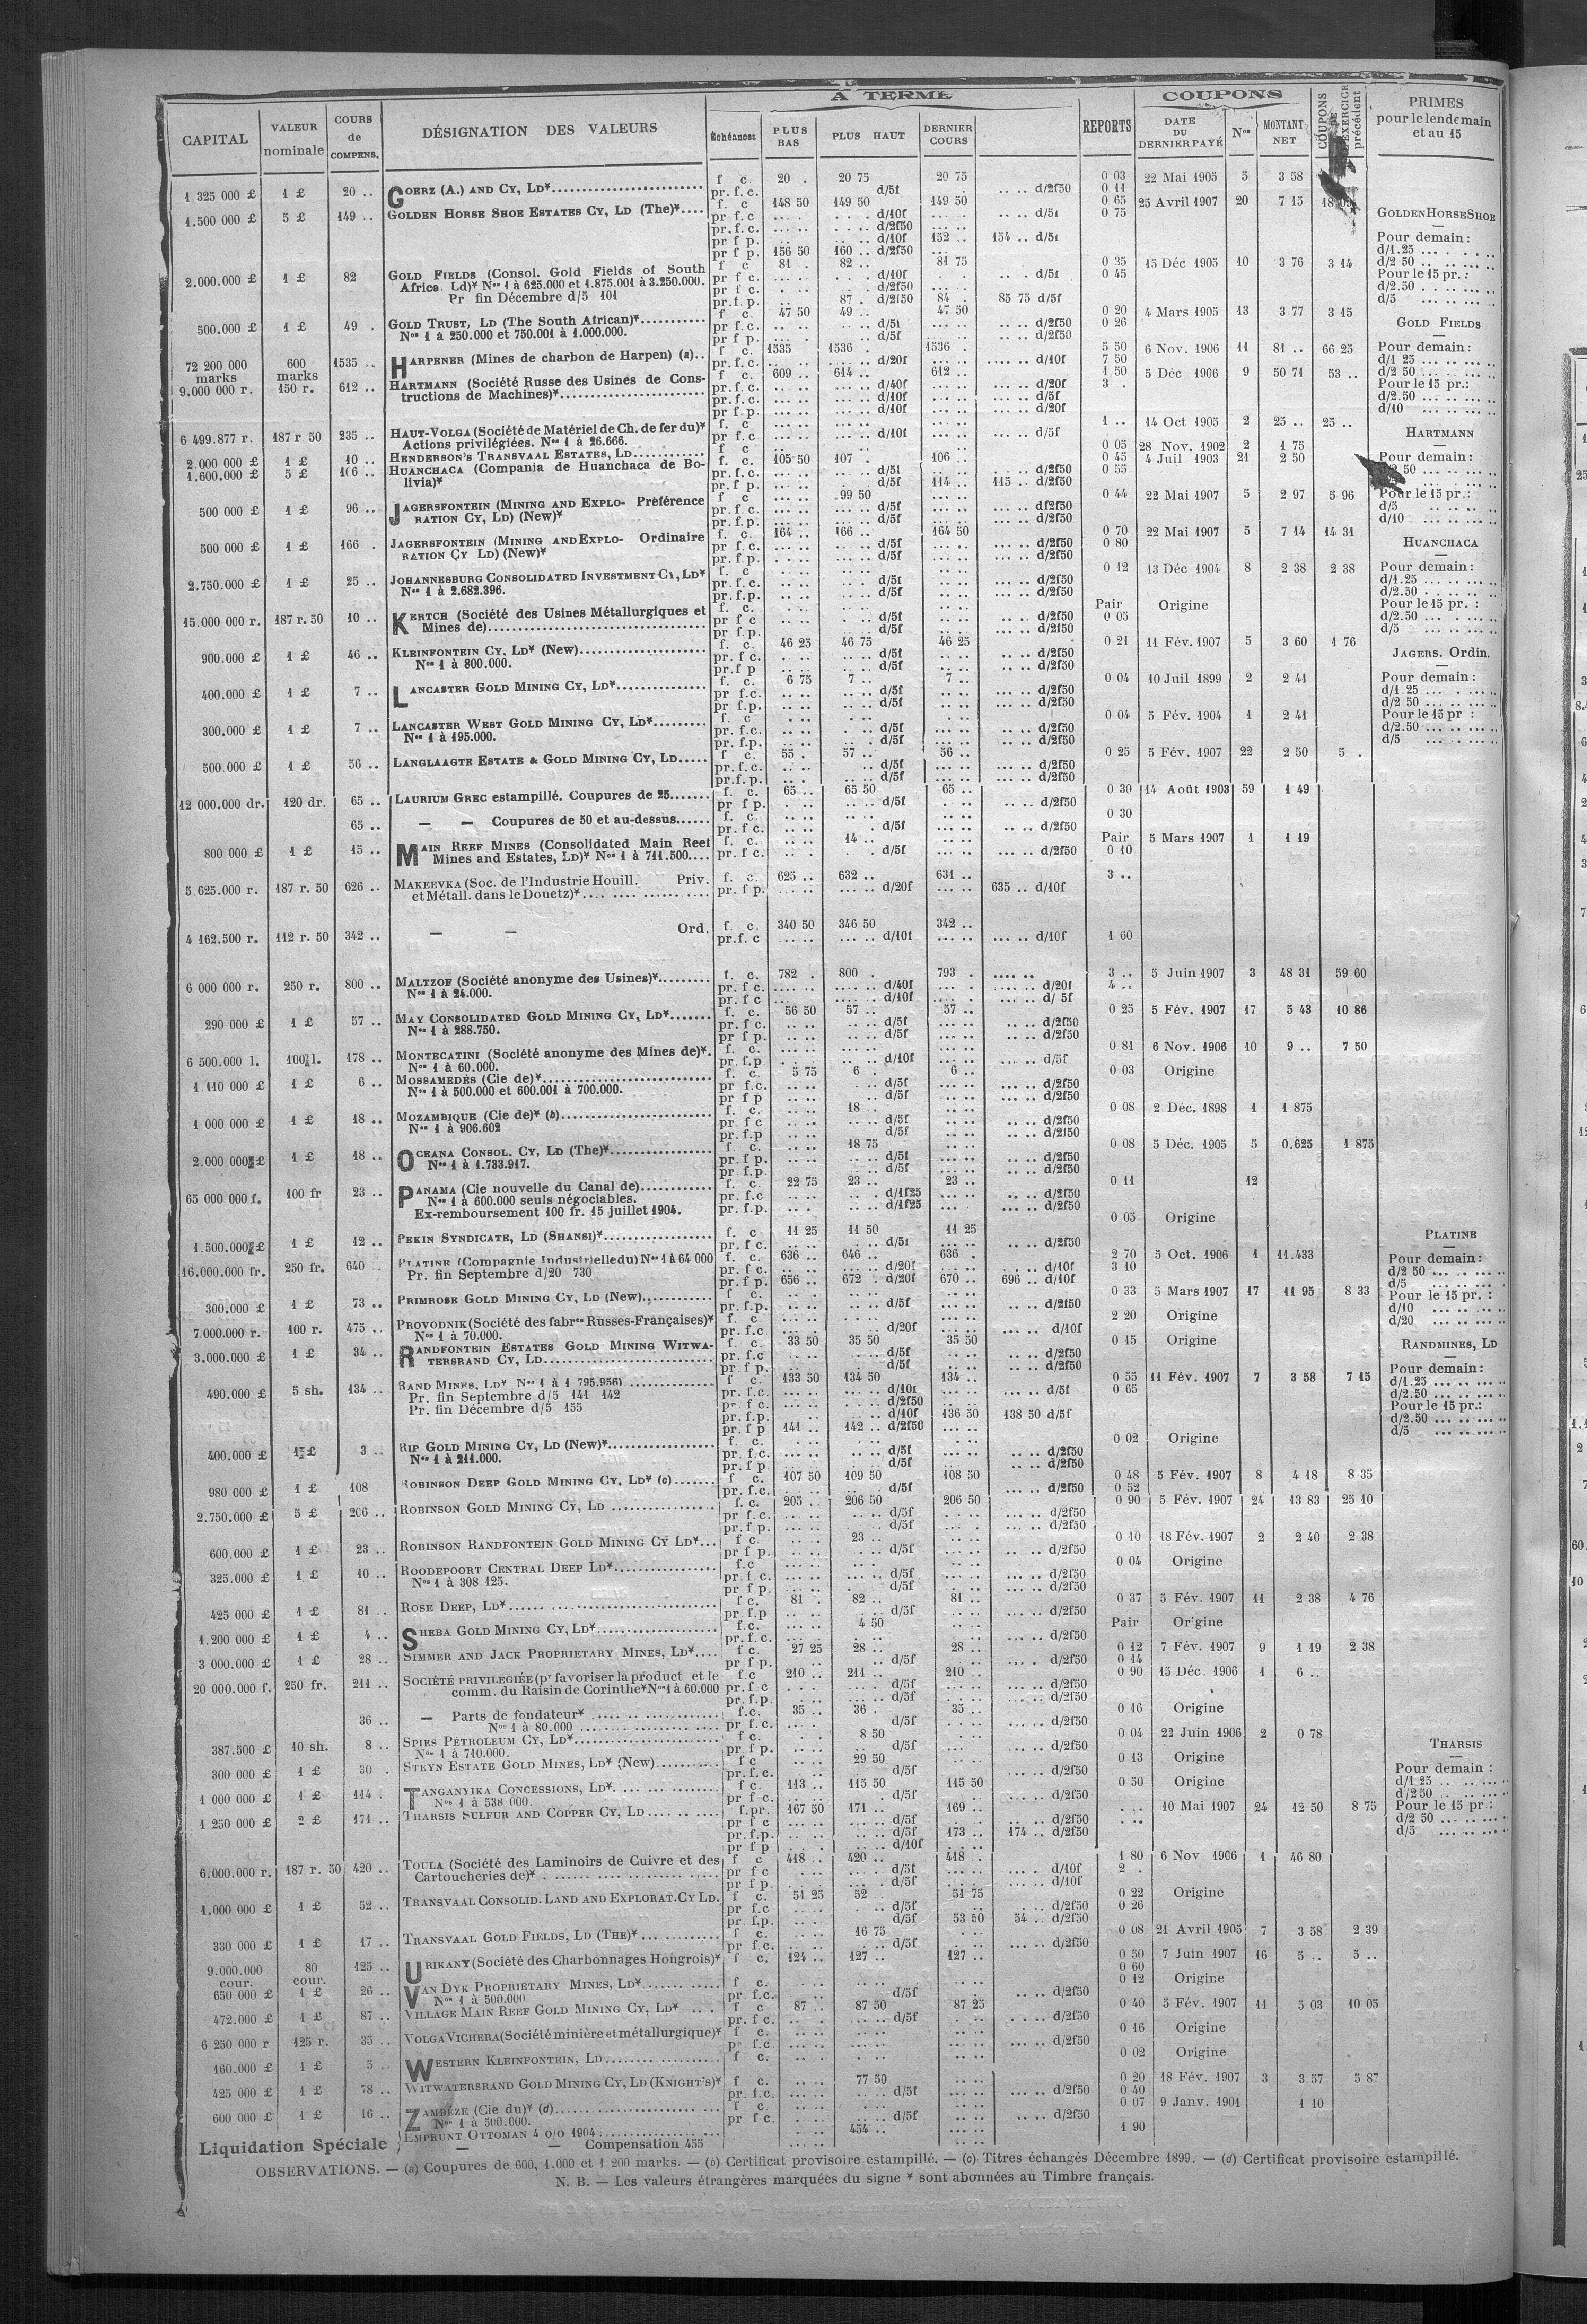 A TERME
COUPONS
CAPITAL
VALEUR nominale
COURS de COMPENS.
DÉSIGNATION DES VALEURS
Échéances
PLUS BAS
PLUS HAUT
DERNIER COURS
REPORTS
DATE DU DERNIER PAYÉ
Nos
MONTANT NET
COUPONS EXERCICE précédent
PRIMES pour le lendemain et au 15
1 325 000 £ 1 £ 20 .. GOERZ (A.) AND CY, LD* f c. 20 . 20 75 20 75 0 03 22 Mai 1905 5 3 58
pr. f. c. d/5f .. .. d/2f50 0 11
1.500.000 £ 5 £ 149 .. GOLDEN HORSE SHOE ESTATES CY, LD (The)* f. c 148 50 149 50 149 50 0 65 25 Avril 1907 20 7 15
pr. f.c d/10f d/5f 0 75
pr. f. c. d/2f50
pr f p. d/10f 152 .. 154 .. d/5f
pr f p. 156 50 160 .. d/2f50
2.000.000 £ 1 £ 82 GOLD FIELDS (Consol. Gold Fields of South f c 81 . 82 .. 81 75 0 35 15 Déc 1905 10 3 76 3 14
Africa Ld)* Nos 1 à 625.000 et 1.875.001 à 3.250.000. pr f c. d/10f d/5f 0 45
Pr fin Décembre d/5 101 pr f c. d/2f50
pr.f.p. 87 . d/2f50 84 . 85 75 d/5f
500.000 £ 1 £ 49 . GOLD TRUST, LD (The South African)* f c. 47 50 49 .. 47 50 0 20 4 Mars 1905 13 3 77 3 15
Nos 1 à 250.000 et 750.001 à 1.000.000. pr f.c. d/5f d/2f50 0 26
pr f p. d/5f d/2f50
72 200 000 marks 600 marks 1535 .. HARPENER (Mines de charbon de Harpen) (a).. f c. 1535 1536 . 1536 . 5 50 6 Nov. 1906 11 81 .. 66 25
pr. f.c. d/20f d/10f 7 50
9.000 000 r. 150 r. 612 .. HARTMANN (Société Russe des Usines de Cons- f c. 609 .. 614 .. 612 .. 1 50 5 Déc 1906 9 50 71 53 ..
tructions de Machines)* pr. f.c. d/40f d/20f 3 .
pr. f.c. d/10f d/5f
pr f p. d/10f d/20f
6 499.877 r. 187 r 50 235 .. HAUT-VOLGA (Société de Matériel de Ch. de fer du)* f. c 1 .. 14 Oct 1905 2 25 .. 25 ..
Actions privilégiées. Nos 1 à 26.666. pr f.c d/10f d/5f
2.000 000 £ 1 £ 10 .. HENDERSON'S TRANSVAAL ESTATES, LD 0 05 28 Nov. 1902 2 1 75
1.600.000 £ 5 £ 106 .. HUANCHACA (Compania de Huanchaca de Bo- f. c. 105 50 107 . 106 .. 0 45 4 Juil 1903 21 2 50
livia)* pr. f.c. d/5f d/2f50 0 55
pr. f p. d/5f 114 .. 115 .. d/2f50
500 000 £ 1 £ 96 .. JAGERSFONTEIN (MINING AND EXPLO- Préférence f c 99 50 0 44 22 Mai 1907 5 2 97 5 96
RATION CY, LD) (New)* pr. f.c. d/5f d/2f50
pr. f.p. d/5f d/2f50
500 000 £ 1 £ 166 . JAGERSFONTEIN (MINING AND EXPLO- Ordinaire f. c. 164 .. 166 .. 164 50 0 70 22 Mai 1907 5 7 14 14 31
RATION CY LD) (New)* pr f.c. d/5f d/2f50 0 80
pr. f.p. d/5f d/2f50
2.750.000 £ 1 £ 25 .. JOHANNESBURG CONSOLIDATED INVESTMENT CY, LD* f. c 0 12 13 Déc 1904 8 2 38 2 38
Nos 1 à 2.682.396. pr. f.c. d/5f d/2f50
pr. f.p. d/5f d/2f50
15.000 000 r. 187 r. 50 10 .. KERTCH (Société des Usines Métallurgiques et f. c. Pair Origine
Mines de) pr f c d/5f d/2f50 0 05
pr f.p. d/5f d/2f50
900.000 £ 1 £ 46 .. KLEINFONTEIN CY, LD* (New) f. c. 46 25 46 75 46 25 0 21 11 Fév. 1907 5 3 60 1 76
Nos 1 à 800.000. pr. f c. d/5f d/2f50
pr.f p d/5f d/2f50
400.000 £ 1 £ 7 .. LANCASTER GOLD MINING CY, LD* f. c. 6 75 7 .. 7 .. 0 04 10 Juil 1899 2 2 41
pr f.c. d/5f d/2f50
pr f.p. d/5f d/2f50
300.000 £ 1 £ 7 .. LANCASTER WEST GOLD MINING CY, LD* f. c 0 04 5 Fév. 1904 1 2 41
Nos 1 à 195.000. pr. f.c. d/5f d/2f50
pr. f.p. d/5f d/2f50
500.000 £ 1 £ 56 .. LANGLAAGTE ESTATE & GOLD MINING CY, LD f c. 55 . 57 .. 56 .. 0 25 5 Fév. 1907 22 2 50 5 .
pr.f.c. d/5f d/2f50
pr.f.p. d/5f d/2f50
12 000.000 dr. 120 dr. 65 .. LAURIUM GREC estampillé. Coupures de 25 f. c. 65 .. 65 50 65 .. 0 30 14 Août 1903 59 1 49
pr f p. d/5f d/2f50
65 .. — — Coupures de 50 et au-dessus f. c. 0 30
pr. f c. d/5f d/2f50
800 000 £ 1 £ 15 .. MAIN REEF MINES (Consolidated Main Reef f. c. 14 .. Pair 5 Mars 1907 1 1 19
Mines and Estates, Ld)* Nos 1 à 711.500 pr. f c. d/5f d/2f50 0 10
5.625.000 r. 187 r. 50 626 .. MAKEEVKA (Soc. de l'Industrie Houill. Priv. f. c. 625 .. 632 .. 631 .. 3 ..
et Métall. dans le Douetz)* pr. f p. d/20f 635 .. d/10f
4 162.500 r. 112 r. 50 342 .. — — Ord. f. c. 340 50 346 50 342 ..
pr.f. c d/10f d/10f 1 60
6 000 000 r. 250 r. 800 .. MALTZOF (Société anonyme des Usines)* f. c. 782 . 800 . 793 . 3 .. 5 Juin 1907 3 48 31 59 60
Nos 1 à 24.000. pr. f c. d/40f d/20f 4 ..
pr. f c d/10f d/ 5f
290 000 £ 1 £ 57 .. MAY CONSOLIDATED GOLD MINING CY, LD* f. c. 56 50 57 .. 57 .. 0 25 5 Fév. 1907 17 5 43 10 86
Nos 1 à 288.750. pr. f c. d/5f d/2f50
pr f p. d/5f d/2f50
6 500.000 l. 100 l. 178 .. MONTECATINI (Société anonyme des Mines de)*. f. c. 0 81 6 Nov. 1906 10 9 .. 7 50
Nos 1 à 60.000. pr. f.p d/10f d/5f
1.110 000 £ 1 £ 6 .. MOSSAMEDÈS (Cie de)* f. c. 5 75 6 . 6 .. 0 03 Origine
Nos 1 à 500.000 et 600.001 à 700.000. pr f.c. d/5f d/2f50
pr f p d/5f d/2f50
1 000 000 £ 1 £ 18 .. MOZAMBIQUE (Cie de)* (b) f. c. 18 .. 0 08 2 Déc. 1898 1 1 875
Nos 1 à 906.602 pr. f c d/5f d/2f50
pr. f.p d/5f d/2f50
2.000 000 £ 1 £ 18 .. OCEANA CONSOL. CY, LD (The)* f. c 18 75 0 08 5 Déc. 1905 5 0.625 1 875
Nos 1 à 1.733.917. pr. f p. d/5f d/2f50
pr. f.p. d/5f d/2f50
65 000 000 f. 100 fr 23 .. PANAMA (Cie nouvelle du Canal de) f. c 22 75 23 .. 23 .. 0 11 12
Nos 1 à 600.000 seuls négociables. pr. f.c d/1f25 d/2f50
Ex-remboursement 100 fr. 15 juillet 1904. pr. f.p. d/1f25 d/2f50
1.500.000 £ 1 £ 12 .. PEKIN SYNDICATE, LD (SHANSI)* f. c 11 25 11 50 11 25 0 05 Origine
pr f c. d/5f d/2f50
16.000.000 fr. 250 fr. 640 PLATINE (Compagnie Industrielle du) Nos 1 à 64 000 f. c. 636 .. 646 .. 636 . 2 70 5 Oct. 1906 1 11.433
Pr. fin Septembre d/20 730 pr. f c. d/20f d/10f 3 10
pr. f p. 656 .. 672 . d/20f 670 .. 696 .. d/10f
300.000 £ 1 £ 73 .. PRIMROSE GOLD MINING CY, LD (New) f. c. 0 33 5 Mars 1907 17 11 95 8 33
pr. f.p. d/5f d/2f50
7.000.000 r. 100 r. 475 .. PROVODNIK (Société des fabres Russes-Françaises)* f. c 2 20 Origine
Nos 1 à 70.000. pr. f.c d/20f d/10f
3.000.000 £ 1 £ 34 .. RANDFONTEIN ESTATES GOLD MINING WITWA- f. c. 33 50 35 50 35 50 0 15 Origine
TERSRAND CY, LD pr. f.c d/5f d/2f50
pr. f p. d/5f d/2f50
490.000 £ 5 sh. 134 .. RAND MINES, LD* Nos 1 à 1 795.956) f c. 133 50 134 50 134 .. 0 55 11 Fév. 1907 7 3 58 7 15
Pr. fin Septembre d/5 141 142 pr. f.c. d/10f d/5f 0 65
Pr. fin Décembre d/5 155 pr. f c. d/2f50
pr. f.p. d/10f 136 50 138 50 d/5f
pr. f p 141 .. 142 .. d/2f50
400.000 £ 1 £ 3 .. RIP GOLD MINING CY, LD (New)* f. c. 0 02 Origine
Nos 1 à 211.000. pr. f.c. d/5f d/2f50
pr. f p d/5f d/2f50
980 000 £ 1 £ 108 ROBINSON DEEP GOLD MINING CY, LD* (c) f c. 107 50 109 50 108 50 0 48 5 Fév. 1907 8 4 18 8 35
pr. f.c. d/5f d/2f50 0 52
2.750.000 £ 5 £ 206 .. ROBINSON GOLD MINING CY, LD f. c. 205 .. 206 50 206 50 0 90 5 Fév. 1907 24 13 83 25 10
pr f c. d/5f d/2f50
pr. f p. d/5f d/2f50
600.000 £ 1 £ 23 .. ROBINSON RANDFONTEIN GOLD MINING CY LD* f c. 23 .. 0 10 18 Fév. 1907 2 2 40 2 38
pr f p. d/5f d/2f50
325.000 £ 1 £ 10 .. ROODEPOORT CENTRAL DEEP LD* f.c 0 04 Origine
Nos 1 à 308 125. pr. f c. d/5f d/2f50
pr f p. d/5f d/2f50
425 000 £ 1 £ 81 .. ROSE DEEP, LD* f c. 81 . 82 .. 81 .. 0 37 5 Fév. 1907 11 2 38 4 76
pr. f.p d/5f d/2f50
1.200 000 £ 1 £ 4 .. SHEBA GOLD MINING CY, LD* f.c. 4 50 Pair Origine
pr. f. c. d/2f50
3 000.000 £ 1 £ 28 .. SIMMER AND JACK PROPRIETARY MINES, LD* f c. 27 25 28 .. 28 .. 0 12 7 Fév. 1907 9 1 19 2 38
pr f p. d/5f d/2f50 0 14
20 000.000 f. 250 fr. 211 .. SOCIÉTÉ PRIVILEGIÉE (pr favoriser la product et le f.c 210 .. 211 .. 210 .. 0 90 15 Déc. 1906 1 6 ..
comm. du Raisin de Corinthe* Nos 1 à 60.000 pr. f c d/5f d/2f50
pr. f.p. d/5f d/2f50
36 .. — Parts de fondateur* f.c. 35 .. 36 . 35 .. 0 16 Origine
Nos 1 à 80.000 pr f. c. d/5f d/2f50
387.500 £ 10 sh. 8 .. SPIES PÉTROLEUM CY, LD* f c. 8 50 0 04 22 Juin 1906 2 0 78
Nos 1 à 710.000. pr f p. d/5f d/2f50
300 000 £ 1 £ 30 . STEYN ESTATE GOLD MINES, LD* (New) f c. 29 50 0 13 Origine
pr. f.c. d/5f d/2f50
1 000 000 £ 1 £ 114 . TANGANYIKA CONCESSIONS, LD* f c. 113 .. 115 50 115 50 0 50 Origine
Nos 1 à 538 000. pr f c. d/5f d/2f50
1 250 000 £ 2 £ 171 .. THARSIS SULFUR AND COPPER CY, LD f.pr. 167 50 171 .. 169 .. 10 Mai 1907 24 12 50 8 75
pr f c d/5f d/2f50
pr. f.p. d/5f 173 .. 174 .. d/2f50
pr f p d/10f
6.000.000 r. 187 r. 50 420 .. TOULA (Société des Laminoirs de Cuivre et des f c 418 .. 420 .. 418 .. 1 80 6 Nov 1906 1 46 80
Cartoucheries de)* pr f c d/5f d/10f 2 .
pr f p. d/5f d/10f
1.000 000 £ 1 £ 52 .. TRANSVAAL CONSOLID. LAND AND EXPLORAT. CY LD. f c. 51 25 52 . 51 75 0 22 Origine
pr f.c d/5f d/2f50 0 26
pr. f.p. d/5f 53 50 54 . d/2f50
330 000 £ 1 £ 17 .. TRANSVAAL GOLD FIELDS, LD (THE)* f c. 16 75 0 08 21 Avril 1905 7 3 58 2 39
pr f c. d/5f d/2f50
9.000.000 cour. 80 cour. 125 .. URIKANY (Société des Charbonnages Hongrois)* f c. 124 .. 127 .. 127 .. 0 50 7 Juin 1907 16 5 .. 5 ..
0 60
650 000 £ 1 £ 26 .. VAN DYK PROPRIETARY MINES, LD* f c. 0 12 Origine
Nos 1 à 500.000 pr f.c. d/5f d/2f50
472.000 £ 1 £ 87 .. VILLAGE MAIN REEF GOLD MINING CY, LD* f c 87 .. 87 50 87 25 0 40 5 Fév. 1907 11 5 03 10 05
pr. f c. d/5f d/2f50
6 250 000 r 125 r. 35 .. VOLGA VICHERA (Société minière et métallurgique)* f c. 0 16 Origine
pr f.c d/2f50
160.000 £ 1 £ 5 .. WESTERN KLEINFONTEIN, LD f c. 0 02 Origine
425 000 £ 1 £ 78 .. WITWATERSRAND GOLD MINING CY, LD (KNIGHT'S)* f c. 77 50 0 20 18 Fév. 1907 3 3 57 5 87
pr. f.c. d/5f d/2f50 0 40
600 000 £ 1 £ 16 .. ZAMBÈZE (Cie du)* (d) f c. 0 07 9 Janv. 1901 1 10
Nos 1 à 500.000. pr f c. d/5f d/2f50
Liquidation Spéciale EMPRUNT OTTOMAN 4 o/o 1904 454 .. 1 90
— — Compensation 455
GOLDEN HORSE SHOE
Pour demain :
d/1.25
d/2 50
Pour le 15 pr. :
d/2.50
d/5
GOLD FIELDS
Pour demain :
d/1 25
d/2 50
Pour le 15 pr.:
d/2.50
d/10
HARTMANN
Pour demain :
50
Pour le 15 pr.:
d/5
d/10
HUANCHACA
Pour demain :
d/1.25
d/2.50
Pour le 15 pr. :
d/2.50
d/5
JAGERS. Ordin.
Pour demain :
d/1.25
d/2 50
Pour le 15 pr :
d/2.50
d/5
PLATINE
Pour demain :
d/2 50
d/5
Pour le 15 pr. :
d/10
d/20
RANDMINES, LD
Pour demain :
d/1.25
d/2.50
Pour le 15 pr.:
d/2.50
d/5
THARSIS
Pour demain :
d/1 25
d/2 50
Pour le 15 pr :
d/2 50
d/5
OBSERVATIONS. — (a) Coupures de 600, 1.000 et 1 200 marks. — (b) Certificat provisoire estampillé. — (c) Titres échangés Décembre 1899. — (d) Certificat provisoire estampillé.
N. B. — Les valeurs étrangères marquées du signe * sont abonnées au Timbre français.